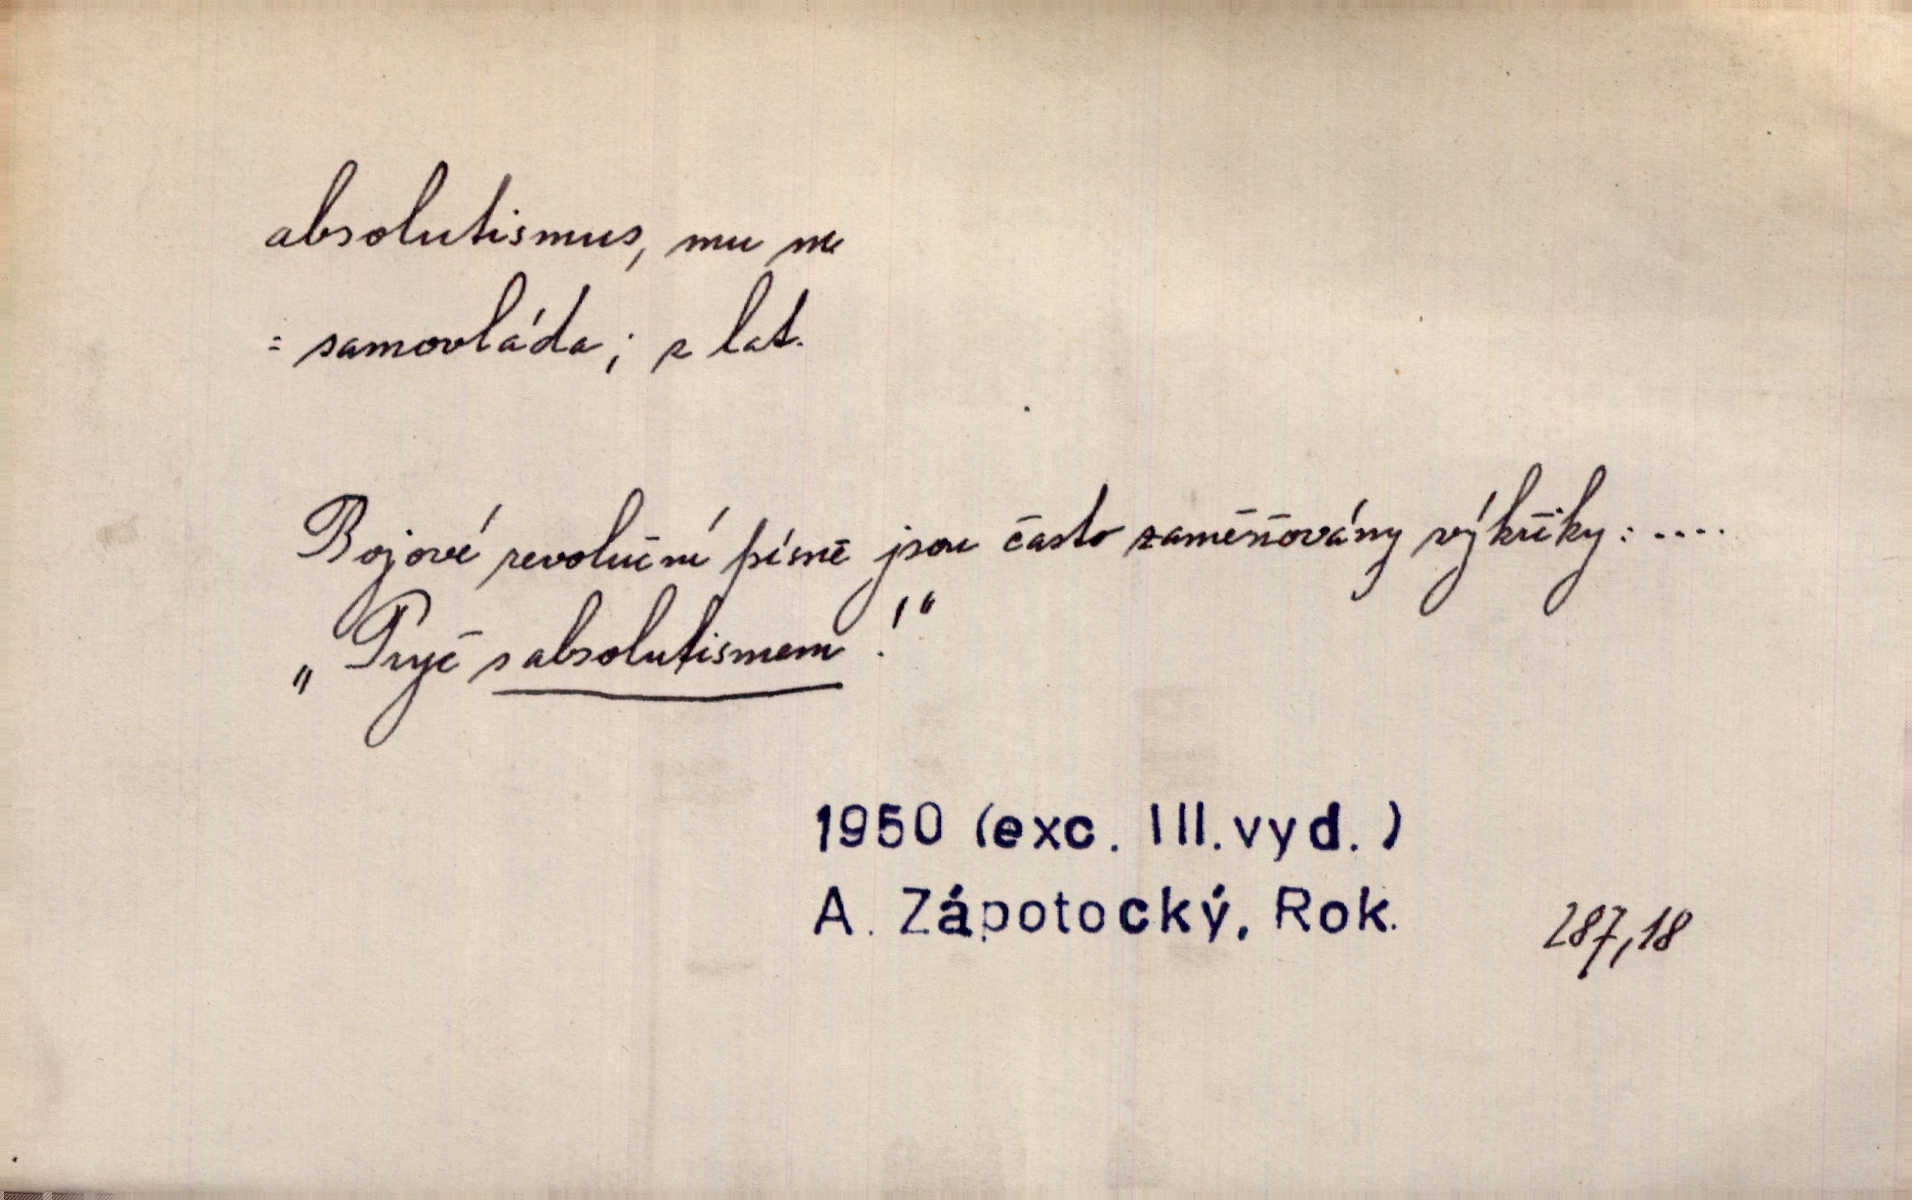 absolutismus, mu m.
= samovláda; z lat.
Bojové revoluční písně jsou často zaměňovány výkřiky: ....
„Pryč s absolutismem!“
1950 (exc. III. vyd.)
A. Zápotocký, Rok.
287,18